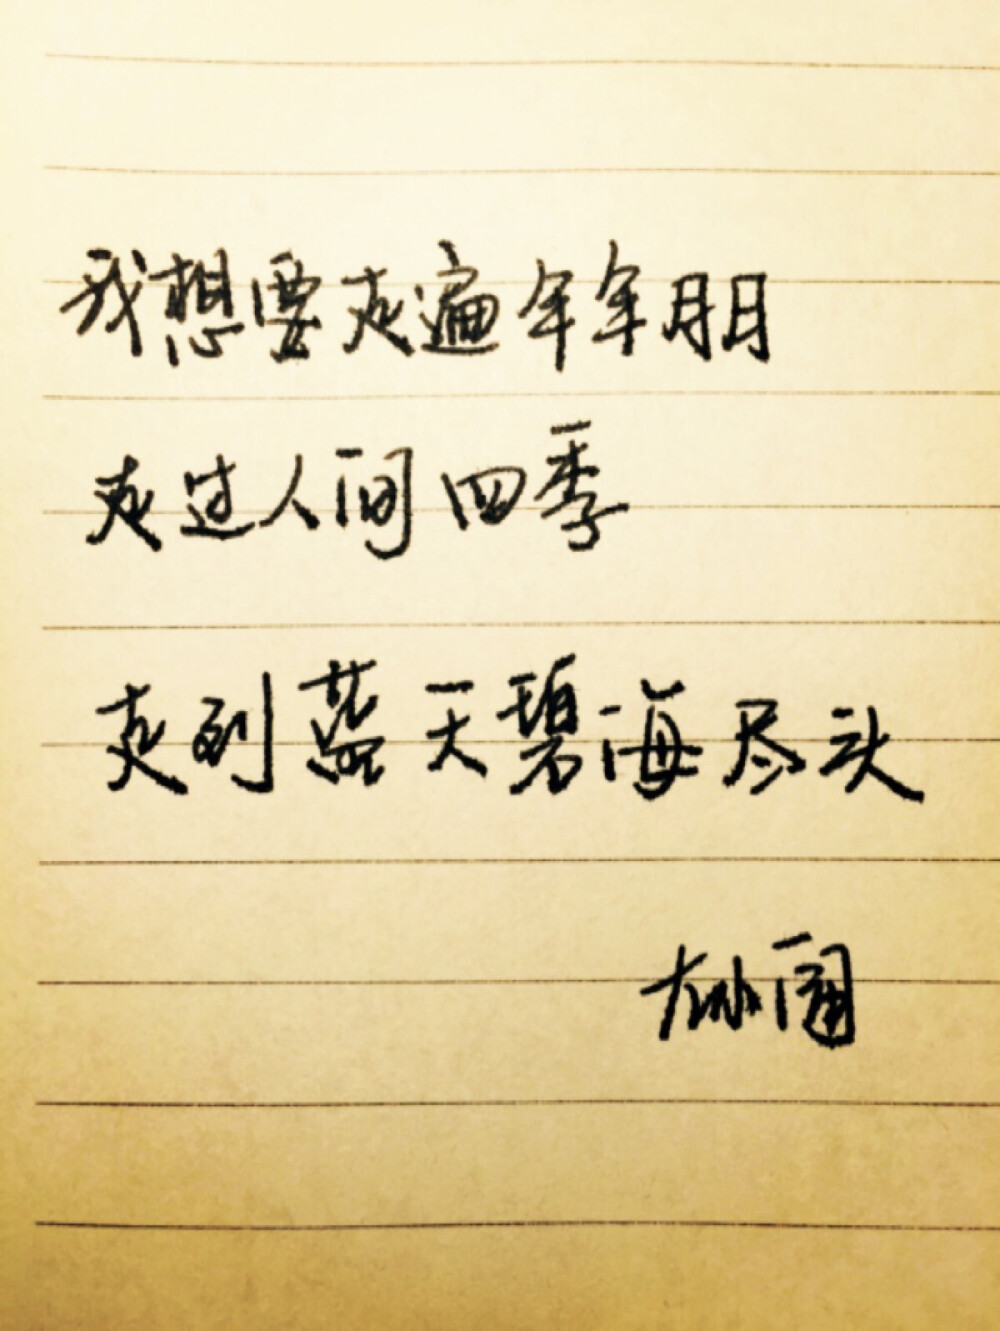 我想要走遍年年月月
走过人间四季
走到蓝天碧海尽头